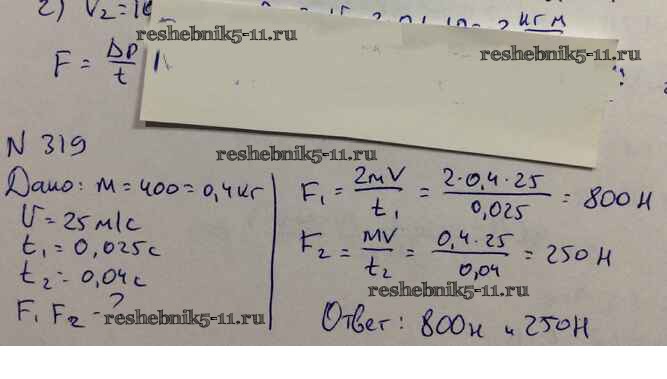 2) V₂=1
reshebnik5-11.ru
кг м
reshebnik5-11.ru
F = ΔP/t
N 319
reshebnik5-11.ru
Дано: м = 400 = 0,4 кг
V = 25 м/с
t₁ = 0,025 с
t₂ = 0,04 с
F₁ F₂ - ?
reshebnik5-11.ru
F₁ = 2mV/t₁ = 2·0,4·25/0,025 = 800 Н
F₂ = mV/t₂ = 0,4·25/0,04 = 250 Н
reshebnik5-11.ru
Ответ: 800н и 250Н